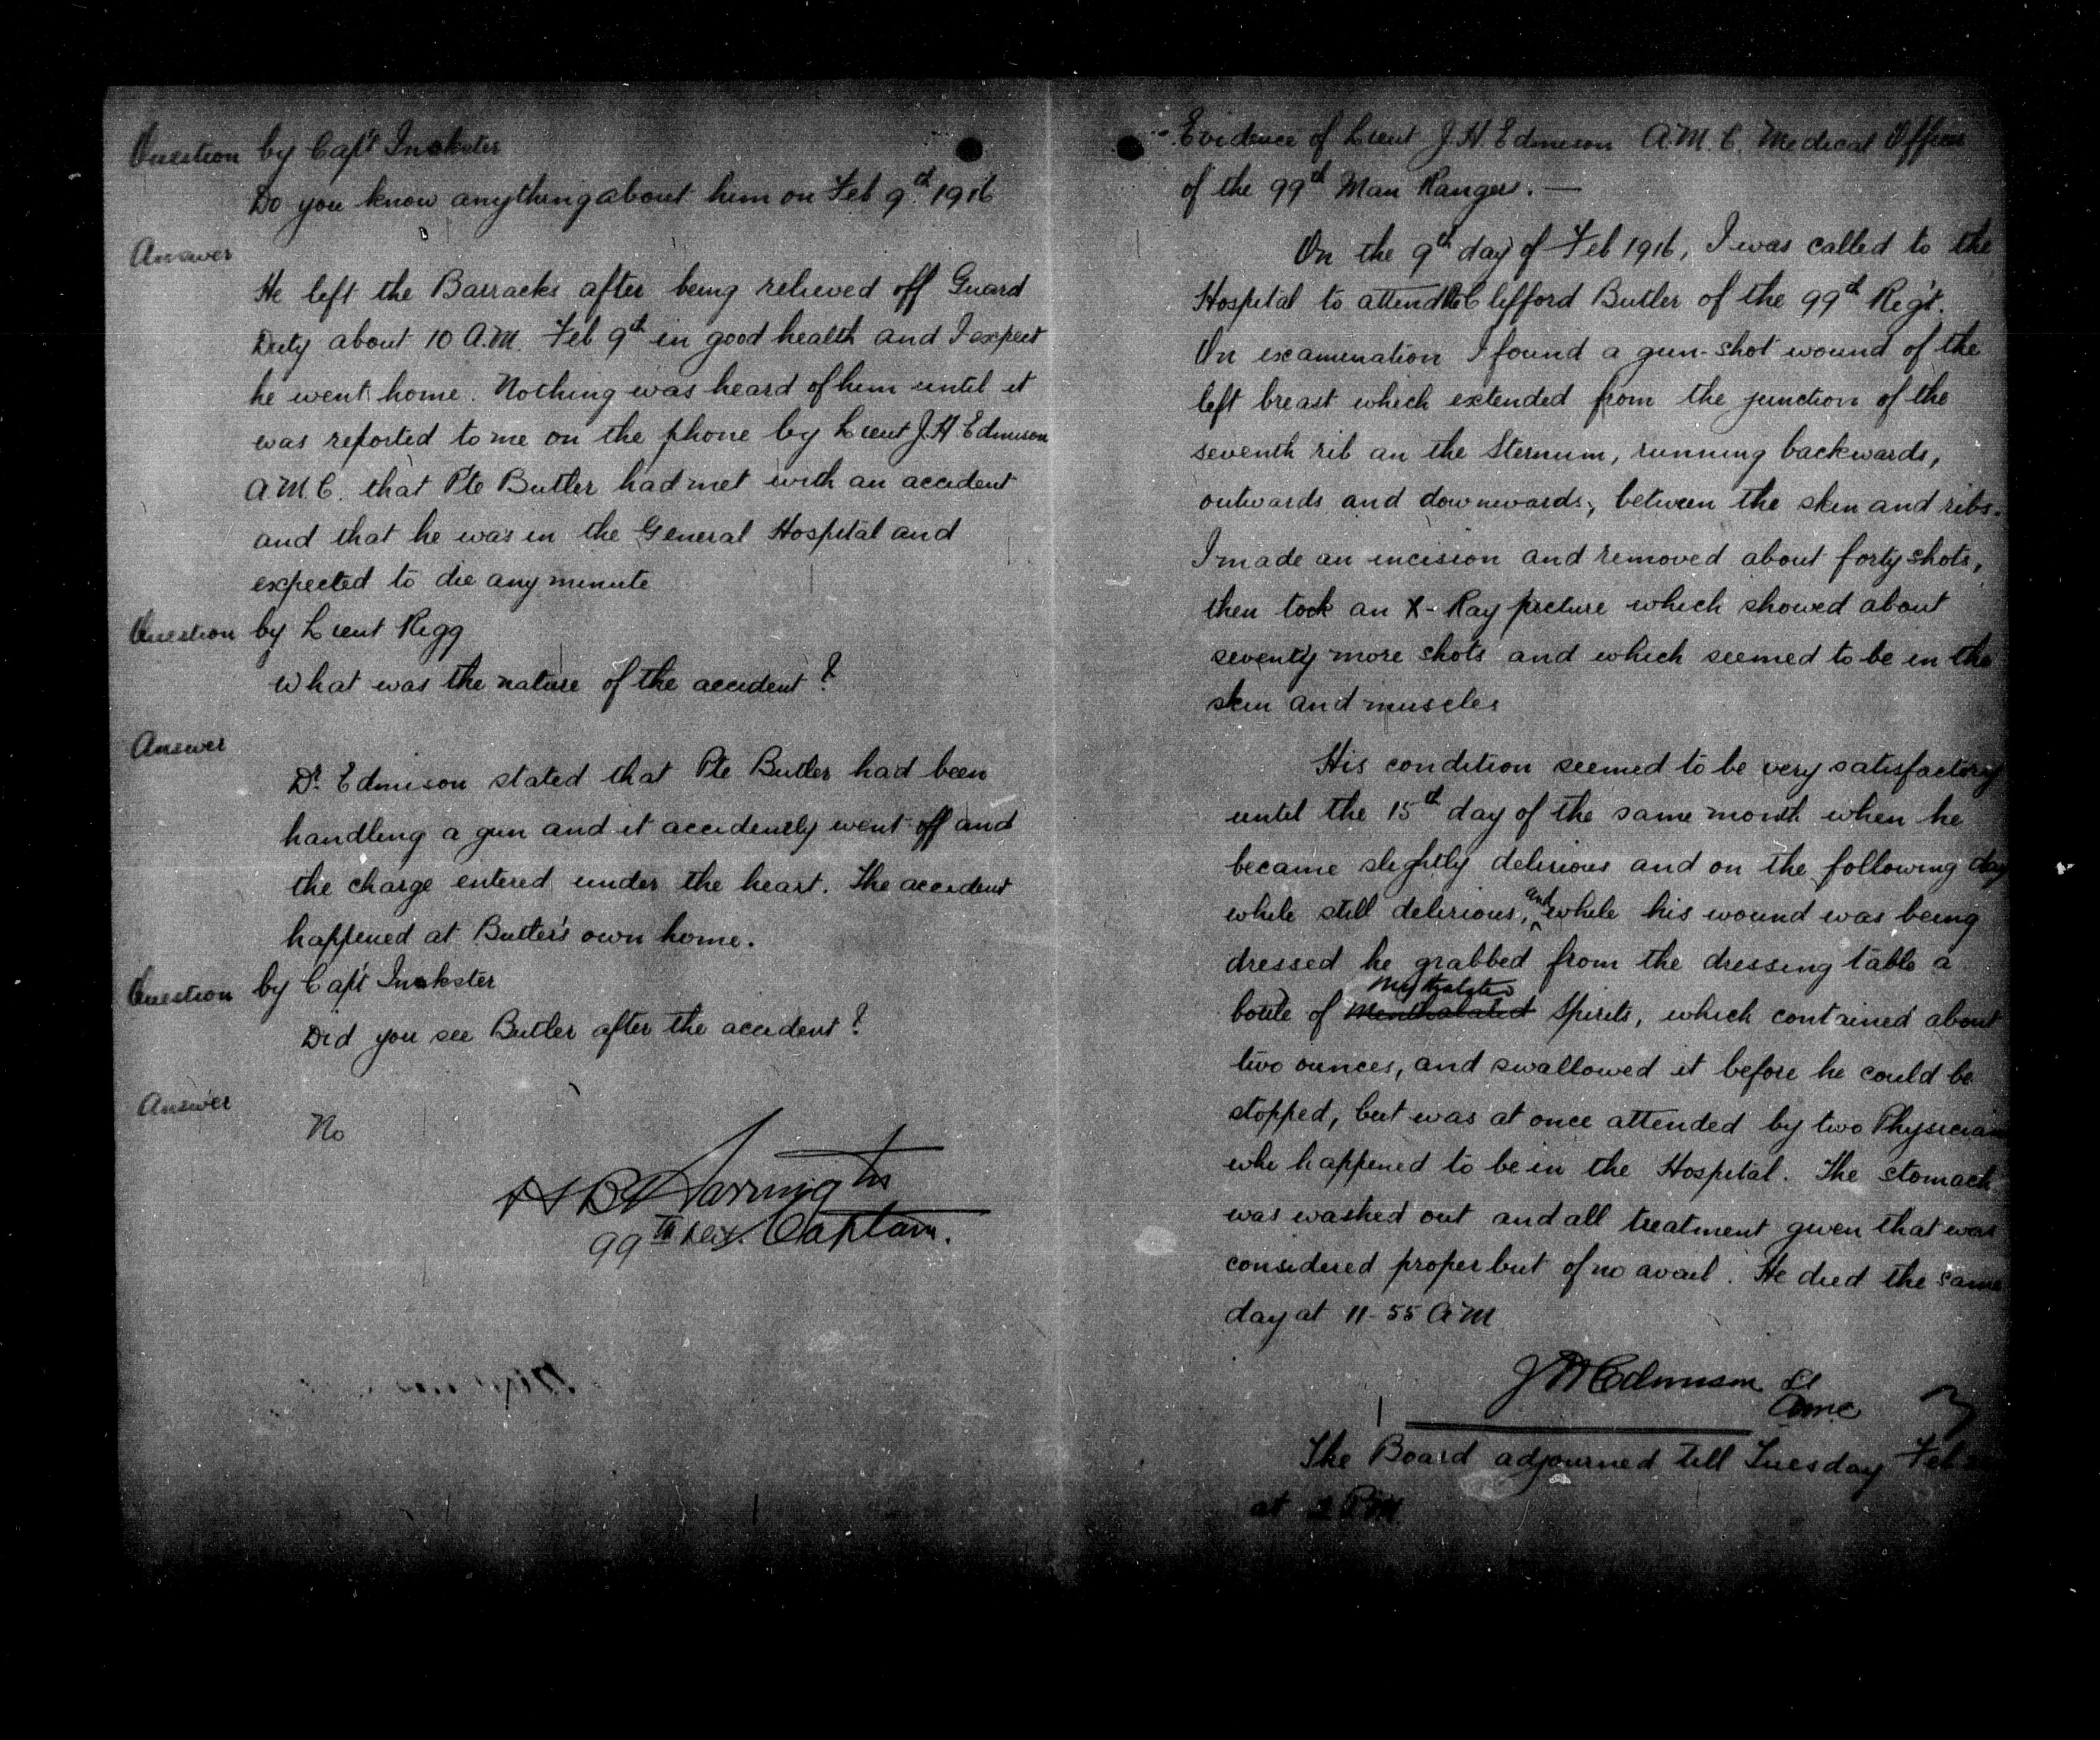 Question by Capt Inkster
Do you know anything about him on Feb 9th 1916
Answer
He left the Barracks after being relieved off Guard
Duty about 10 A.M. Feb 9th in good health and I expect
he went home. Nothing was heard of him until it
was reported to me on the phone by Lieut J.H. Edmison
A.M.C. that Pte Butler had met with an accident
and that he was in the General Hospital and
expected to die any minute
Question by Lieut Rigg
What was the nature of the accident?
Answer
Dr. Edmison stated that Pte Butler had been
handling a gun and it accidently went off and
the charge entered under the heart. The accident
happened at Butler's own home.
Question by Capt Inkster
Did you see Butler after the accident?
Answer
No
99th Captain.
Evidence of Lieut J.H. Edmison A.M.C. Medical Officer
of the 99th Man Rangers. —
On the 9th day of Feb 1916, I was called to the
Hospital to attend Pte Clifford Butler of the 99th Regt.
On examination I found a gun-shot wound of the
left breast which extended from the junction of the
seventh rib an the Sternum, running backwards,
outwards and downwards, between the skin and ribs.
I made an incision and removed about forty shots,
then took an X-Ray picture which showed about
seventy more shots and which seemed to be in the
skin and muscles
His condition seemed to be very satisfactory
until the 15th day of the same month when he
became slightly delirious and on the following day
while still delirious, and while his wound was being
dressed he grabbed from the dressing table a
bottle of Menthalated Spirits, which contained about
two ounces, and swallowed it before he could be
stopped, but was at once attended by two Physicians
who happened to be in the Hospital. The stomach
was washed out and all treatment given that was
considered proper but of no avail. He died the same
day at 11-55 A.M
J H Edmison Lt
AMC
The Board adjourned till Tuesday Feb
at 2 P.M.